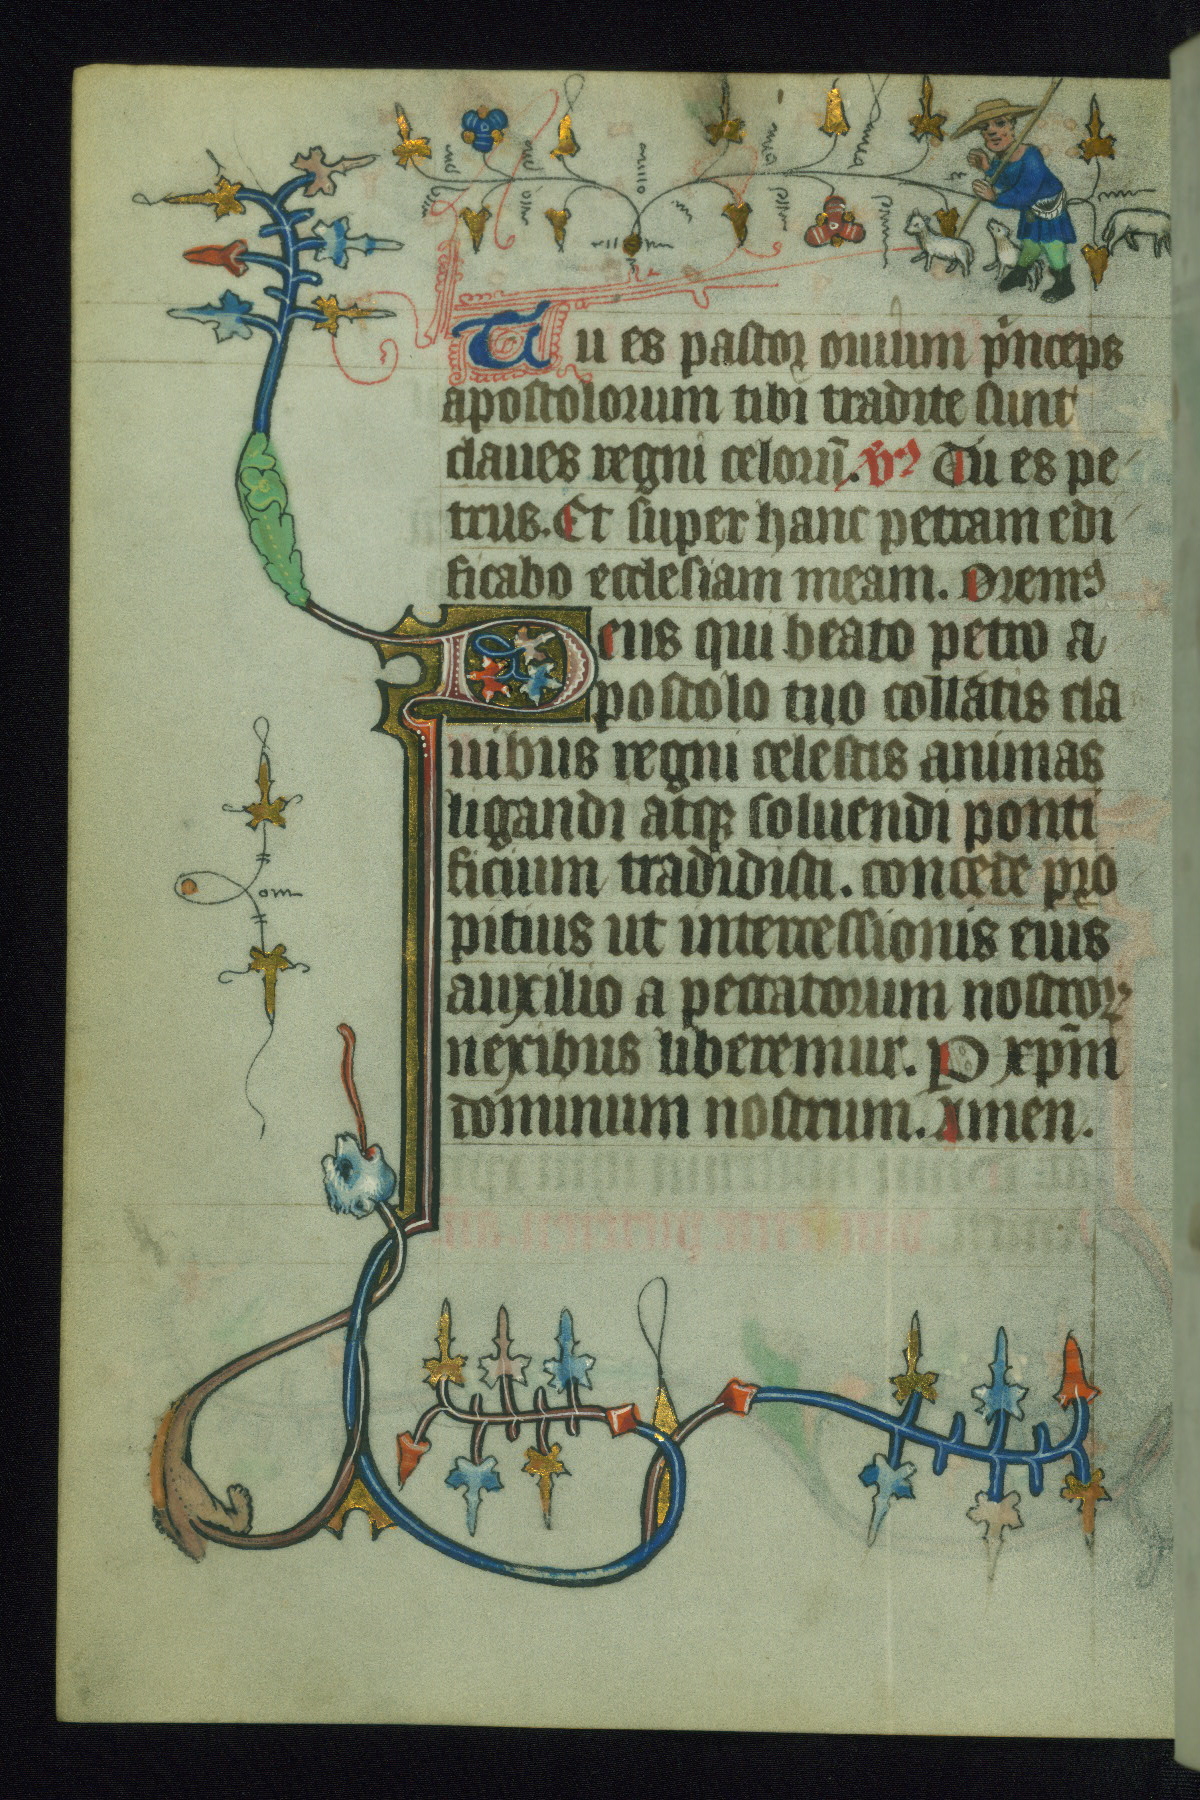 Tu es pastor ouium p̾nceps
apostolorum tibi tradite sunt
claues regni celorū. v̾s Tu es pe
trus. Et super hanc petram edi
ficabo ecclesiam meam. Oremꝰ
Deus qui beato petro a
postolo tuo collatis cla
uibus regni celestis animas
ligandi atqꝫ soluendi ponti
ficium tradidisti. concede pro
pitius ut intercessionis eius
auxilio a peccatorum nostroꝝ
nexibus liberemur. P xp̄m
dominum nostrum. Amen.